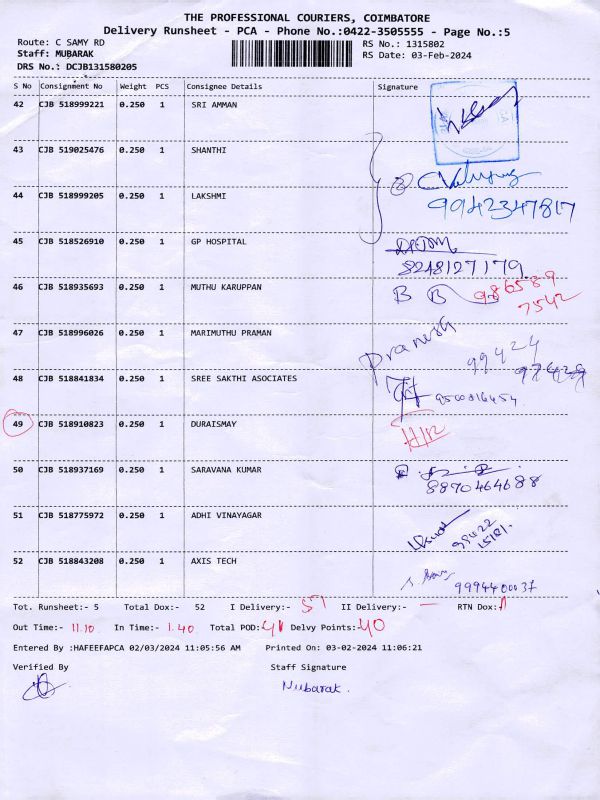 THE PROFESSIONAL COURIERS, COIMBATORE
Delivery Runsheet - PCA - Phone No.:0422-3505555 - Page No.:5
Route: C SAMY RD
RS No.: 1315802
Staff: MUBARAK
RS Date: 03-Feb-2024
DRS No.: DCJB131580205
S No Consignment No Weight PCS Consignee Details Signature
42 CJB 518999221 0.250 1 SRI AMMAN
43 CJB 519025476 0.250 1 SHANTHI
44 CJB 518999205 0.250 1 LAKSHMI
9942347817
45 CJB 518526910 0.250 1 GP HOSPITAL
8248127179
46 CJB 518935693 0.250 1 MUTHU KARUPPAN B B 986589
7542
47 CJB 518996026 0.250 1 MARIMUTHU PRAMAN Pranesh 99424
97429
48 CJB 518841834 0.250 1 SREE SAKTHI ASOCIATES
9500816454
49 CJB 518910823 0.250 1 DURAISMAY
50 CJB 518937169 0.250 1 SARAVANA KUMAR
8870464688
51 CJB 518775972 0.250 1 ADHI VINAYAGAR
52 CJB 518843208 0.250 1 AXIS TECH
9994400037
Tot. Runsheet:- 5 Total Dox:- 52 I Delivery:- 51 II Delivery:- — RTN Dox:-
Out Time:- 11.10 In Time:- 1.40 Total POD:- 41 Delvy Points:- 40
Entered By :HAFEEFAPCA 02/03/2024 11:05:56 AM Printed On: 03-02-2024 11:06:21
Verified By Staff Signature
Mubarak.